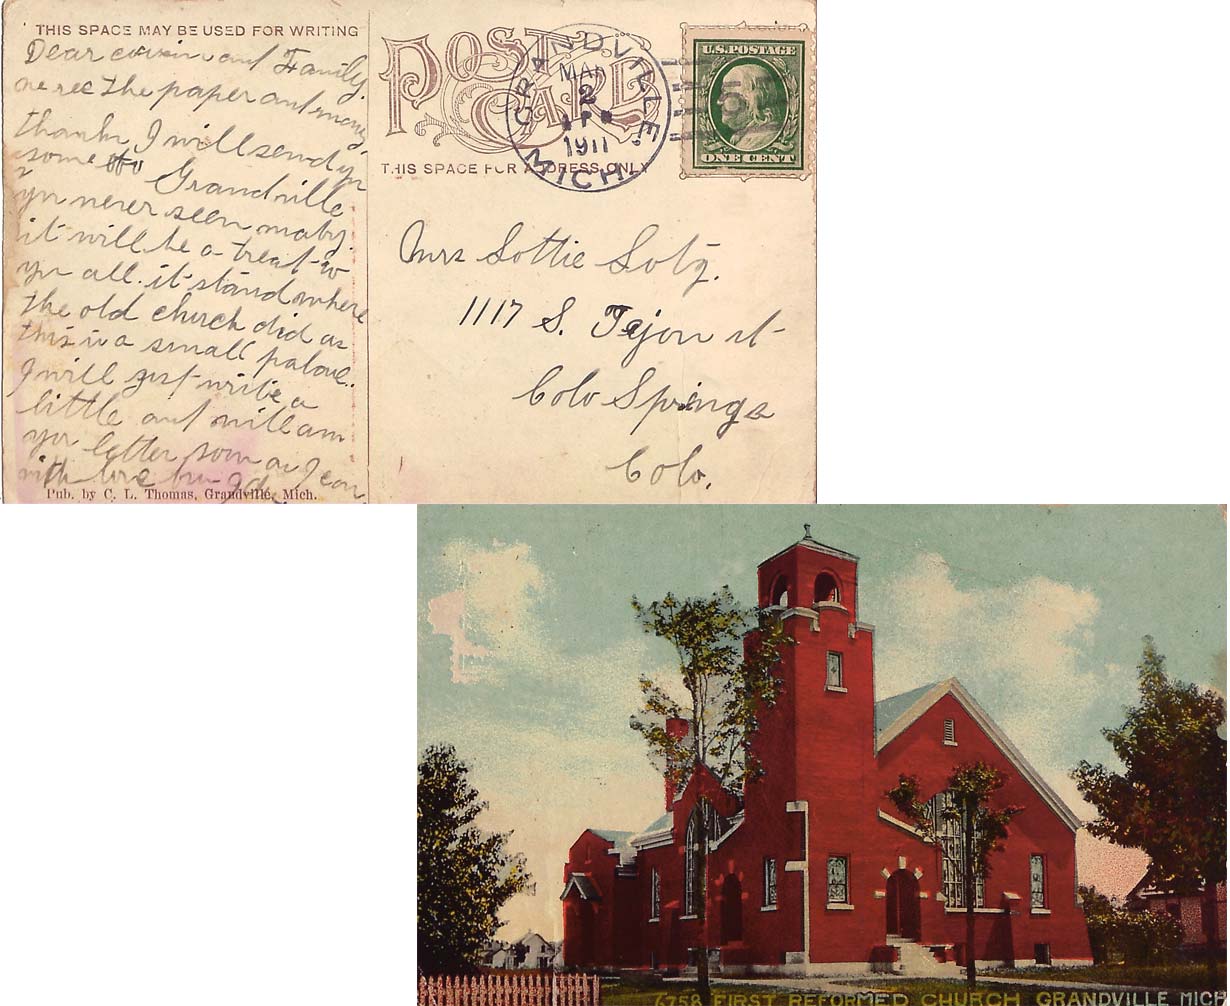 THIS SPACE MAY BE USED FOR WRITING
Dear cousin and Family
we rec the paper and money
thanks I will send yu
some of Grandville
yu never seen maby
it will be a treat to
yu all. it stand where
the old church did as
this is a small palave.
I will just write a
little and will ans
yur letter soon as I can
with love from
Pub. by C. L. Thomas, Grandville, Mich.
POST CARD
GRANDVILLE, MICH.
MAR
2
P
1911
U.S. POSTAGE
ONE CENT
THIS SPACE FOR ADDRESS ONLY
Mrs Lottie Lotz.
1117 S. Tejon st
Colo Springs
Colo.
6758 FIRST REFORMED CHURCH GRANDVILLE MICH